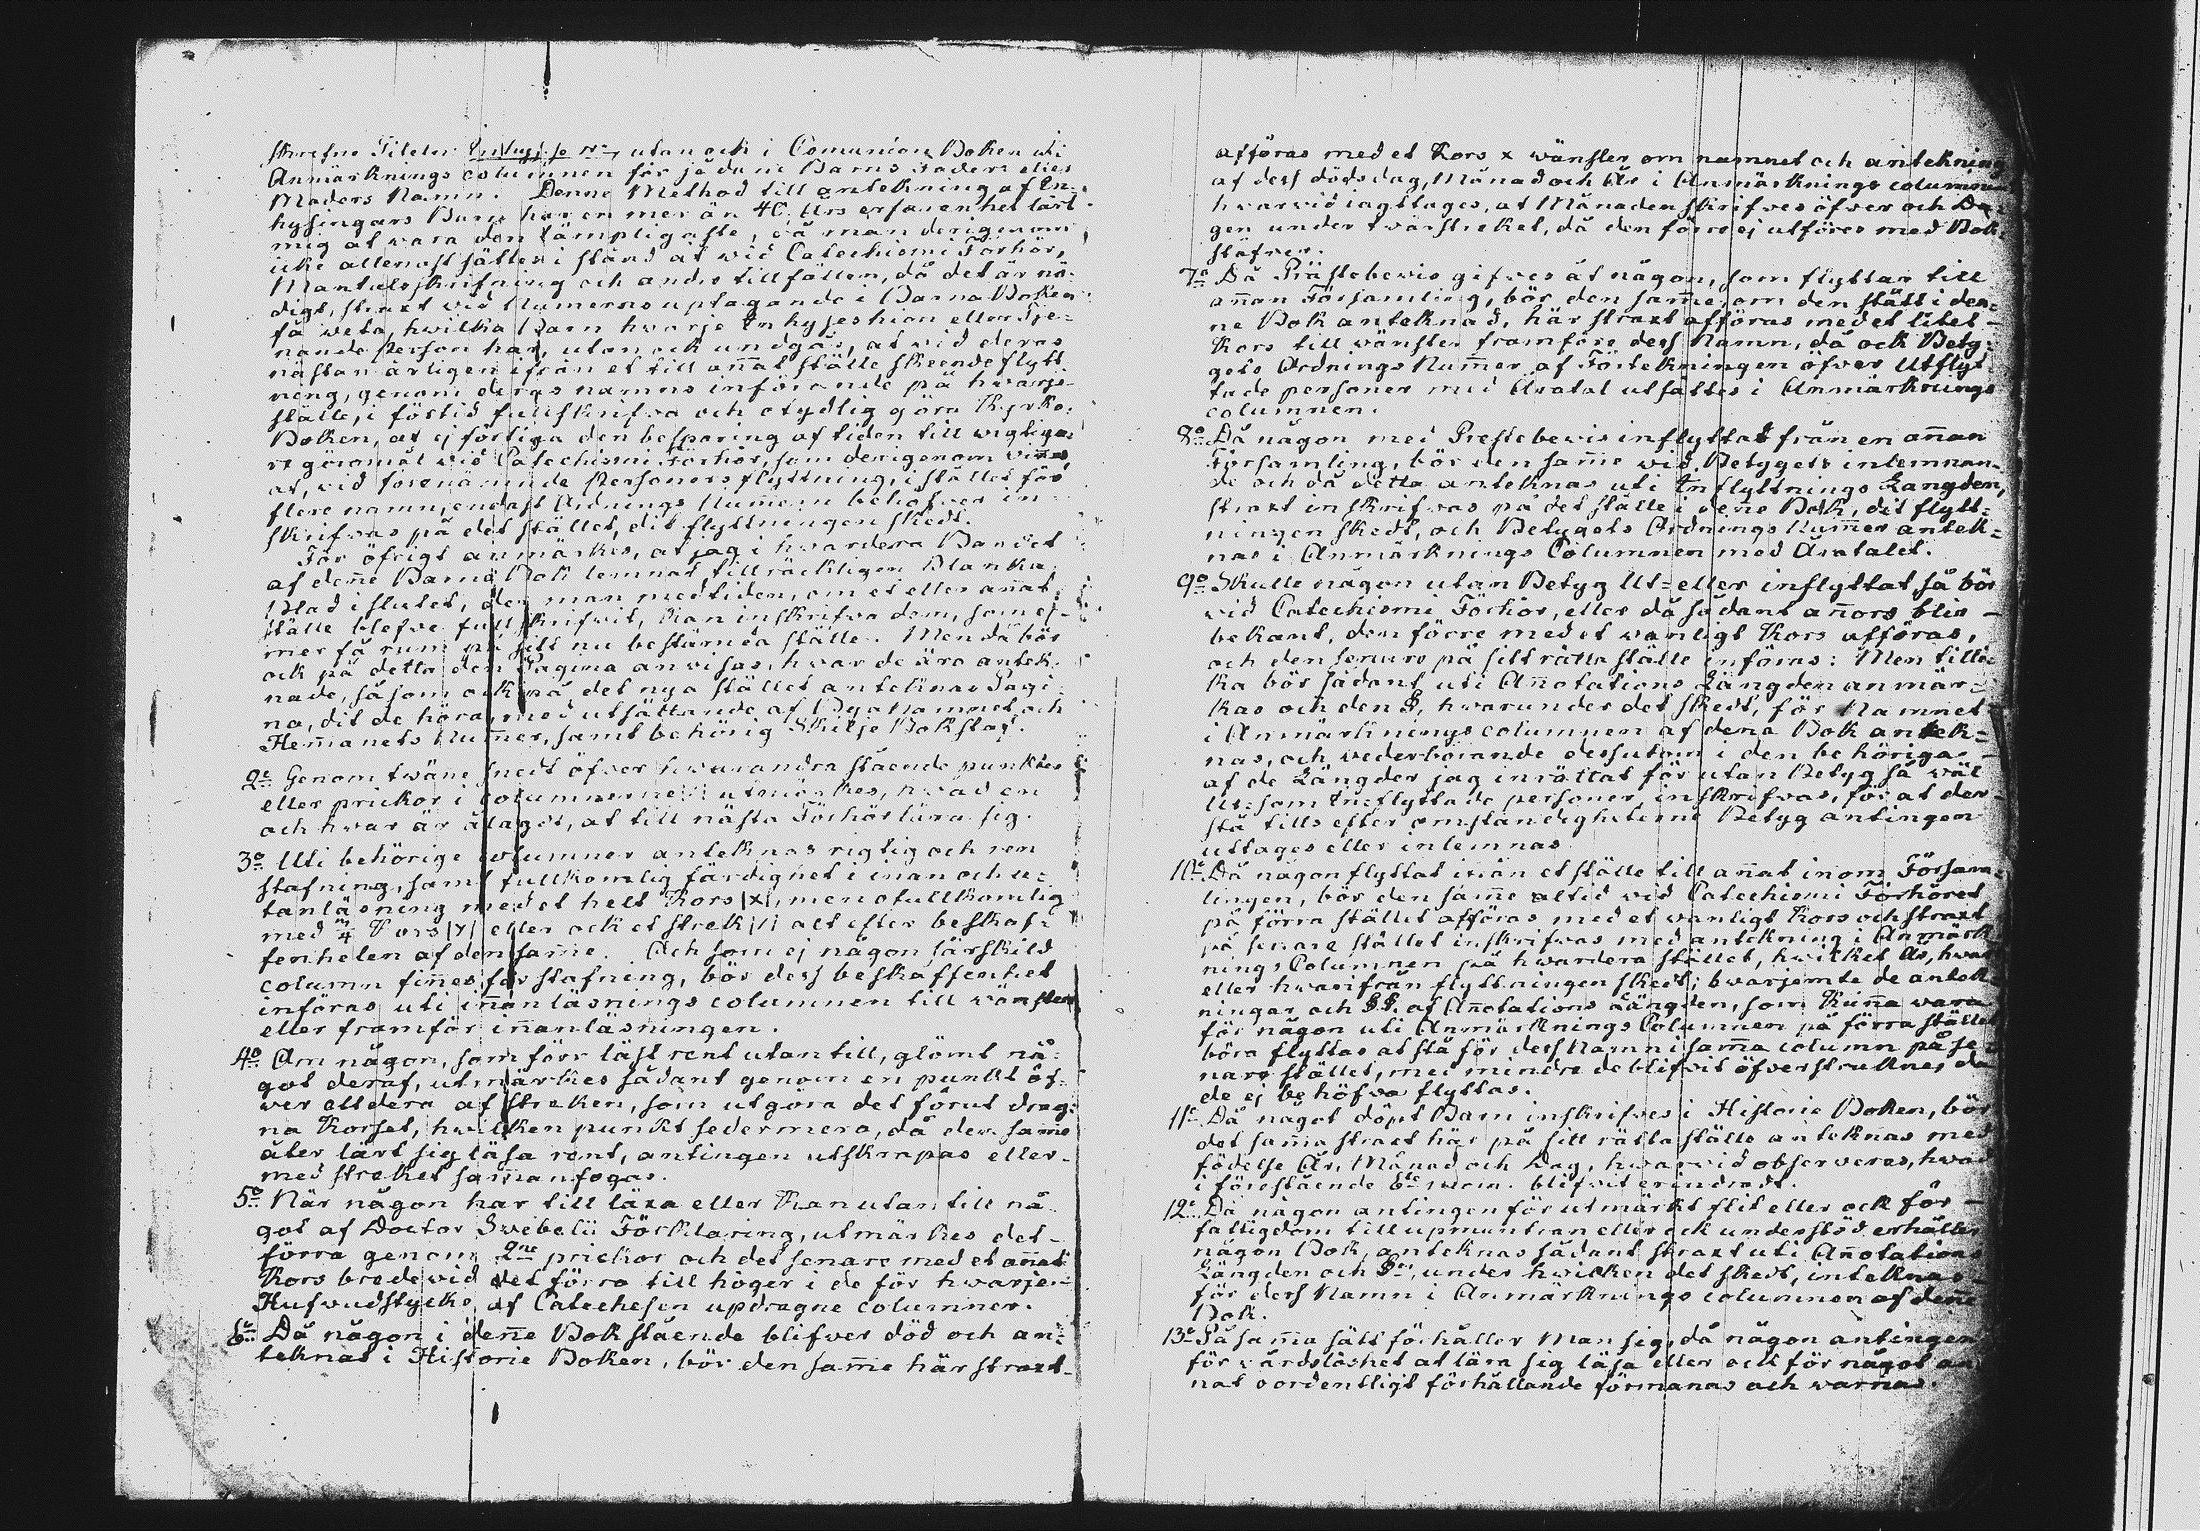 skrefne Titeln utan ock i Comunion Boken uti
Anmärknings columnen för sådane Barns Faders eller
Moders Namn. Denne Method till antekning af In-
hysingars Barn har en mer än 40 Års erfarenhet lärt
mig at vara den lämpligaste, då man derigenom
icke allenast sättes i stånd at wid Catechismi Förhör,
Mantalsskrifning och andre tillfällen, då det är nö-
digt, straxt vid Numerns uptagande i Barna Boken
få weta, hwilka Barn hwarje Inhyseshion eller dje-
nande Person har, utan ock undgås, at vid deras
nästan årligen ifrån et till añat ställe skeende flytt-
ning, genom deras namns införande på hwarje
ställe, i förtid fullskrifva och otydlig göra Kyrko-
Boken, at ej förtiga den besparing af tiden till wigtiga-
re göromål wid Catechismi Förhör, som derigenom vinnes
at, vid förenämnde Personers flyttning, i stället för
flere namn, endast Ordnings Numern behöfver in-
skrifvas på det stället, dit flyttningen skedt.
För öfrigt anmärkes, at jag i hwardera Bandet
af deñe Barna Bok lemnat tillräckligen Blanka
Blad i slutet, der man med tiden, om et eller añat
ställe blefve fullskrifvit, kan inskrifva dem, som ej-
mer få rum på sitt nu bestämda ställe. Men då bör
ock på detta den Pagina anvisas, hvar de äro antek-
nade, såsom ock på det nya stället anteknas Pagi-
na, dit de höra, med utsättande af Bya Namnet och
Hem̃anets Num̃er, samt behörig Skilje Bokstaf.
2º Genom twäñe snedt öfver hwarandra stående punkter
eller prickor i columnerne utmärkes, hvad en
och hwar är ålagdt, at till nästa Förhör lära sig.
3º Uti behörige columner anteknas rigtig och ren
stafning, samt fullkomlig färdighet i inan och u-
tanläsning med et helt Kors |x|, men ofullkomlig
med ¾ Kors |Y| eller ock et strek |/| alt efter beskaf-
fenheten af den sam̃e. Och som ej någon särskild
column fiñes för stafning, bör dess beskaffenhet
införas uti iñanläsnings columnen till wänster
eller framför iñanläsningen.
4º Om någon, som förr läst rent utantill, glömt nå-
got deraf, utmärkes sådant genom en punkt öf-
wer ettdera af streken, som utgöra det förut drag-
na Korset, hwilken punkt sedermera, då den sam̃e
åter lärt sig läsa rent, antingen utskrapas eller
med streket sam̃anfogas.
5º När någon har till läxa eller Kan utantill nå-
got af Doctor Svebelii Förklaring, utmärkes det-
förra genom 2ne prickor och det senare med et añat
Kors bredevid det förra till höger i de för hwarje-
Hufvudstycke af Catechesen updragne columner.
6º Då någon i deñe Bok stående blifver död och an-
teknas i Historie Boken, bör den sam̃e här straxt
afföras med et Kors x wänster om namnet och antekning
af dess dödsdag, Månad och År i Anmärknings columnen
hvarvid iagttages, at Månaden skrifves öfver och Da-
gen under twärstreket, då den förre ej utföres med Bok-
stäfver.
7º Då Prästebewis gifves åt någon, som flyttar till
añan Församling, bör den sam̃e, om den stått i den-
ne Bok anteknad, här straxt afföras med et litet
Kors till wänster framföre dess Namn, då ock Bety-
gets Ordnings Num̃er af Förtekningen öfver Utflyt-
tade personer med Åratal utsättes i Anmärknings
columnen.
8º Då någon med Prestebevis inflyttat från en añan
Församling, bör den sam̃e wid Betygets inlemnan-
de och då detta anteknas uti Inflyttnings Längden,
straxt inskrifvas på det ställe i deñe Bok, dit flytt-
ningen skedt, och Betygets Ordnings Num̃er antek-
nas i Anmärknings Columnen med Åratalet.
9º Skulle någon utan Betyg Ut- eller inflyttat, så bör
vid Catechismi Förhör, eller då sådant añors blir
bekant, den förre med et wanligt Kors afföras,
och den senare på sitt rätta ställe införas: Men tilli-
ka bör sådant uti Añotations Längden anmär-
kas och den §, hwarunder det skedt, för Namnet
i Anmärknings columnen af deña Bok antek-
nas, och vederbörande dessutom i den behöriga
af de Längder jag inrättat för utan Betyg så wäl
Ut- som Inflyttade personer inskrifvas, för at der
stå tills efter omständigheterne Betyg antingen
uttages eller inlemnas
10º Då någon flyttat ifrån et ställe till añat inom Försam-
lingen, bör den sam̃e altid vid Catechismi Förhöret
på förra stället afföras med et wanligt Kors och straxt
på senare stället inskrifvas med antekning i Anmärk-
nings Columnen på hwardera stället, hwilket År, hvart
eller hwarifrån flyttningen skedt; hwarjemte de antek-
ningar och §§. af Añotations Längden, som Kuñe wara
för någon uti Anmärknings Columnen på förra stället
böra flyttas at stå för dess Namn i sam̃a column på se-
nare stället, med mindre de blifvit öfverstrukne, då
de ej behöfva flyttas.
11º Då något döpt Barn inskrifves i Historie Boken, bör
det sam̃a straxt här på sitt rätta ställe anteknas med
födelse År, Månad och Dag, hwarvid observeras, hvad
i förestående 6te mom. blifvit erindradt.
12º Då någon antingen för utmärkt flit eller ock för
fattigdom till upmuntran eller ock understöd erhåller
någon Bok, anteknas sådant straxt uti Añotations
Längden och §en, under hwilken det skedt, inteknas
för dess Namn i Anmärknings columnen af deñe
Bok.
13º På sam̃a sätt förhåller Man sig, då någon antingen
för vårdslöshet at lära sig läsa eller ock för något an-
nat oordentligt förhållande förmanas och warnas.